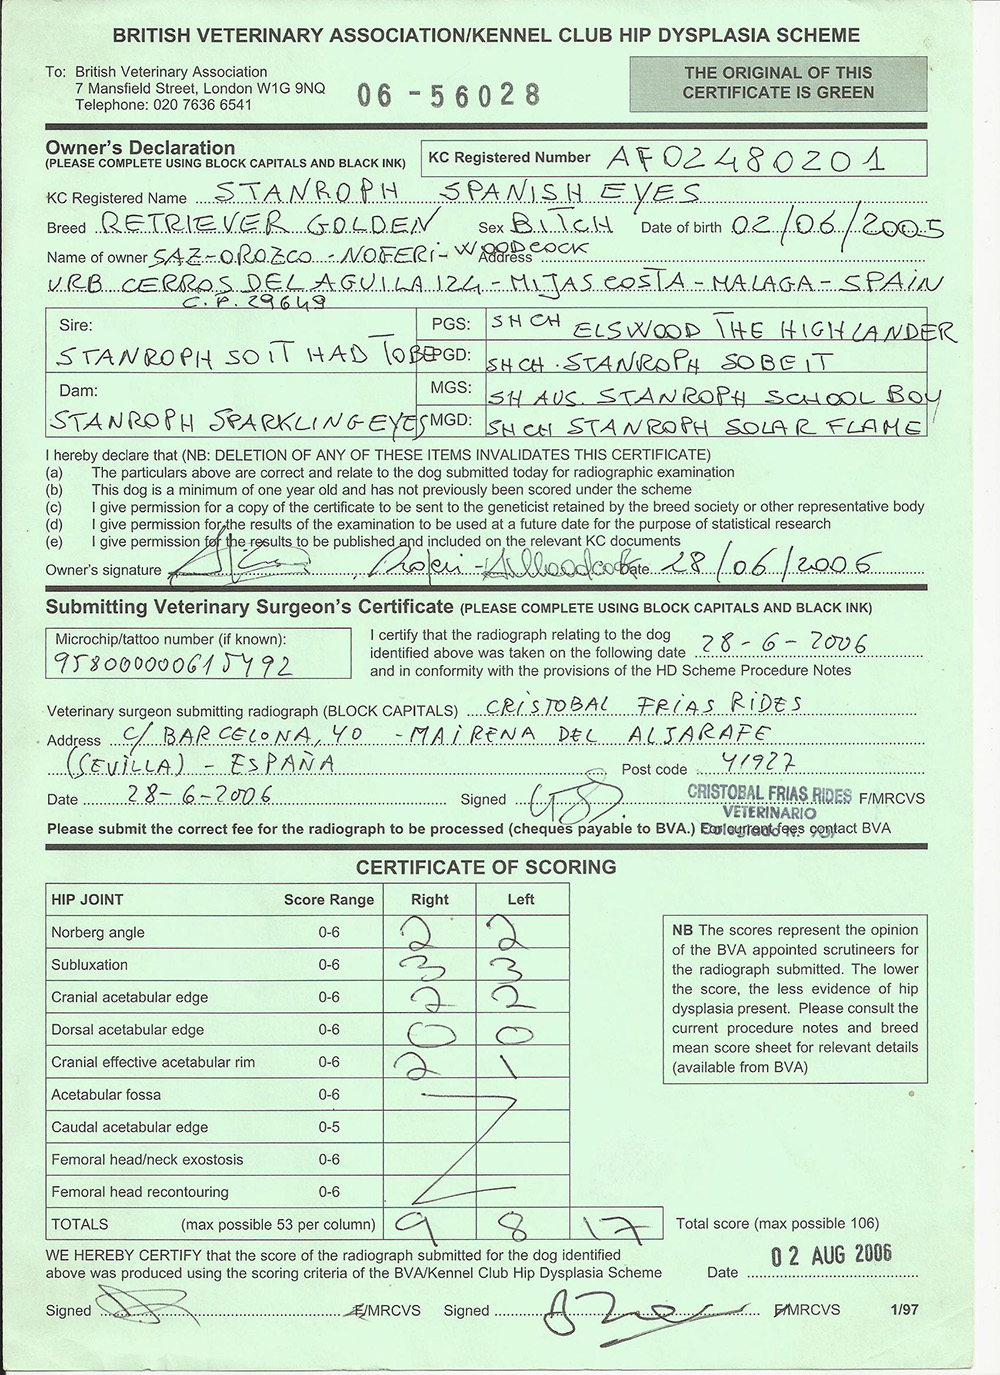 BRITISH VETERINARY ASSOCIATION/KENNEL CLUB HIP DYSPLASIA SCHEME
To: British Veterinary Association
7 Mansfield Street, London W1G 9NQ
Telephone: 020 7636 6541
06-56028
THE ORIGINAL OF THIS
CERTIFICATE IS GREEN
Owner's Declaration
(PLEASE COMPLETE USING BLOCK CAPITALS AND BLACK INK)
KC Registered Number AF02480201
KC Registered Name STANROPH SPANISH EYES
Breed RETRIEVER GOLDEN Sex BITCH Date of birth 02/06/2005
Name of owner SAZ-OROZCO - NOFERI- WOODCOCK Address
URB CERROS DEL AGUILA 124 - MIJAS COSTA - MALAGA - SPAIN
C.P. 29649
Sire:
STANROPH SO IT HAD TO BE
PGS: SH CH ELSWOOD THE HIGHLANDER
PGD: SH CH. STANROPH SO BE IT
Dam:
STANROPH SPARKLING EYES
MGS: SH AUS. STANROPH SCHOOL BOY
MGD: SH CH STANROPH SOLAR FLAME
I hereby declare that (NB: DELETION OF ANY OF THESE ITEMS INVALIDATES THIS CERTIFICATE)
(a) The particulars above are correct and relate to the dog submitted today for radiographic examination
(b) This dog is a minimum of one year old and has not previously been scored under the scheme
(c) I give permission for a copy of the certificate to be sent to the geneticist retained by the breed society or other representative body
(d) I give permission for the results of the examination to be used at a future date for the purpose of statistical research
(e) I give permission for the results to be published and included on the relevant KC documents
Owner's signature Date 28/06/2006
Submitting Veterinary Surgeon's Certificate (PLEASE COMPLETE USING BLOCK CAPITALS AND BLACK INK)
Microchip/tattoo number (if known):
958000000615492
I certify that the radiograph relating to the dog
identified above was taken on the following date 28-6-2006
and in conformity with the provisions of the HD Scheme Procedure Notes
Veterinary surgeon submitting radiograph (BLOCK CAPITALS) CRISTOBAL FRIAS RIDES
Address C/ BARCELONA, 40 - MAIRENA DEL ALJARAFE
(SEVILLA) - ESPAÑA Post code 41927
Date 28-6-2006 Signed CRISTOBAL FRIAS RIDES F/MRCVS
VETERINARIO
Please submit the correct fee for the radiograph to be processed (cheques payable to BVA.) For current fees contact BVA
CERTIFICATE OF SCORING
HIP JOINT Score Range Right Left
Norberg angle 0-6 2 2
Subluxation 0-6 3 3
Cranial acetabular edge 0-6 2 2
Dorsal acetabular edge 0-6 0 0
Cranial effective acetabular rim 0-6 2 1
Acetabular fossa 0-6
Caudal acetabular edge 0-5
Femoral head/neck exostosis 0-6
Femoral head recontouring 0-6
TOTALS (max possible 53 per column) 9 8 17 Total score (max possible 106)
NB The scores represent the opinion
of the BVA appointed scrutineers for
the radiograph submitted. The lower
the score, the less evidence of hip
dysplasia present. Please consult the
current procedure notes and breed
mean score sheet for relevant details
(available from BVA)
WE HEREBY CERTIFY that the score of the radiograph submitted for the dog identified
above was produced using the scoring criteria of the BVA/Kennel Club Hip Dysplasia Scheme
Date 02 AUG 2006
Signed F/MRCVS Signed F/MRCVS 1/97